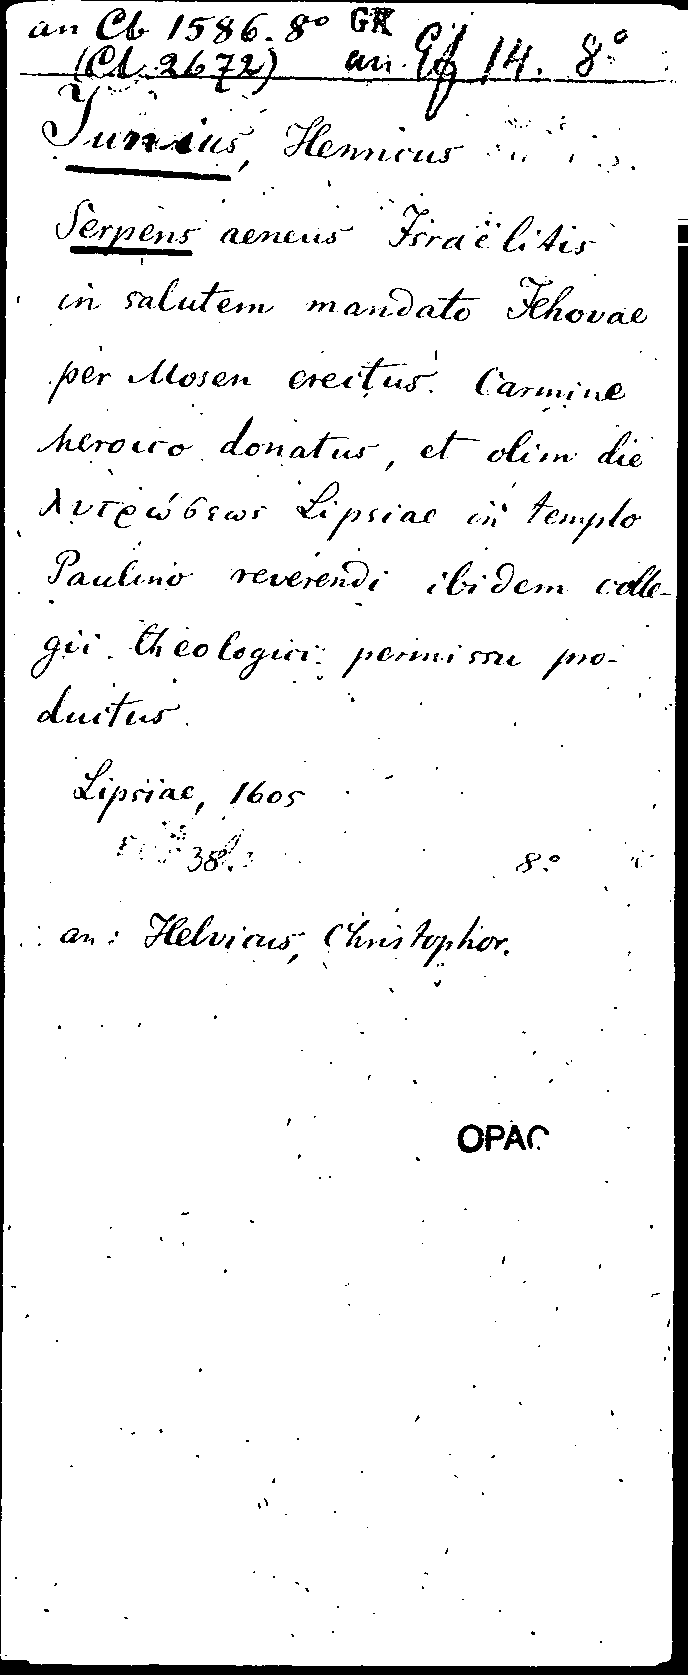 an Cb 1586. 8° GK
(Cb 2672) an Ef 14. 8°
Junius, Henricus
Serpens aeneus Israëlitis
in salutem mandato Jehovae
per Mosen erectus. Carmine
heroico donatus, et olim die
λυτρώσεως Lipsiae in templo
Paulino reverendi ibidem colle-
gii theologici permissu pro-
ductus.
Lipsiae, 1605
38. 8°
an: Helvicus, Christophor.
OPAC